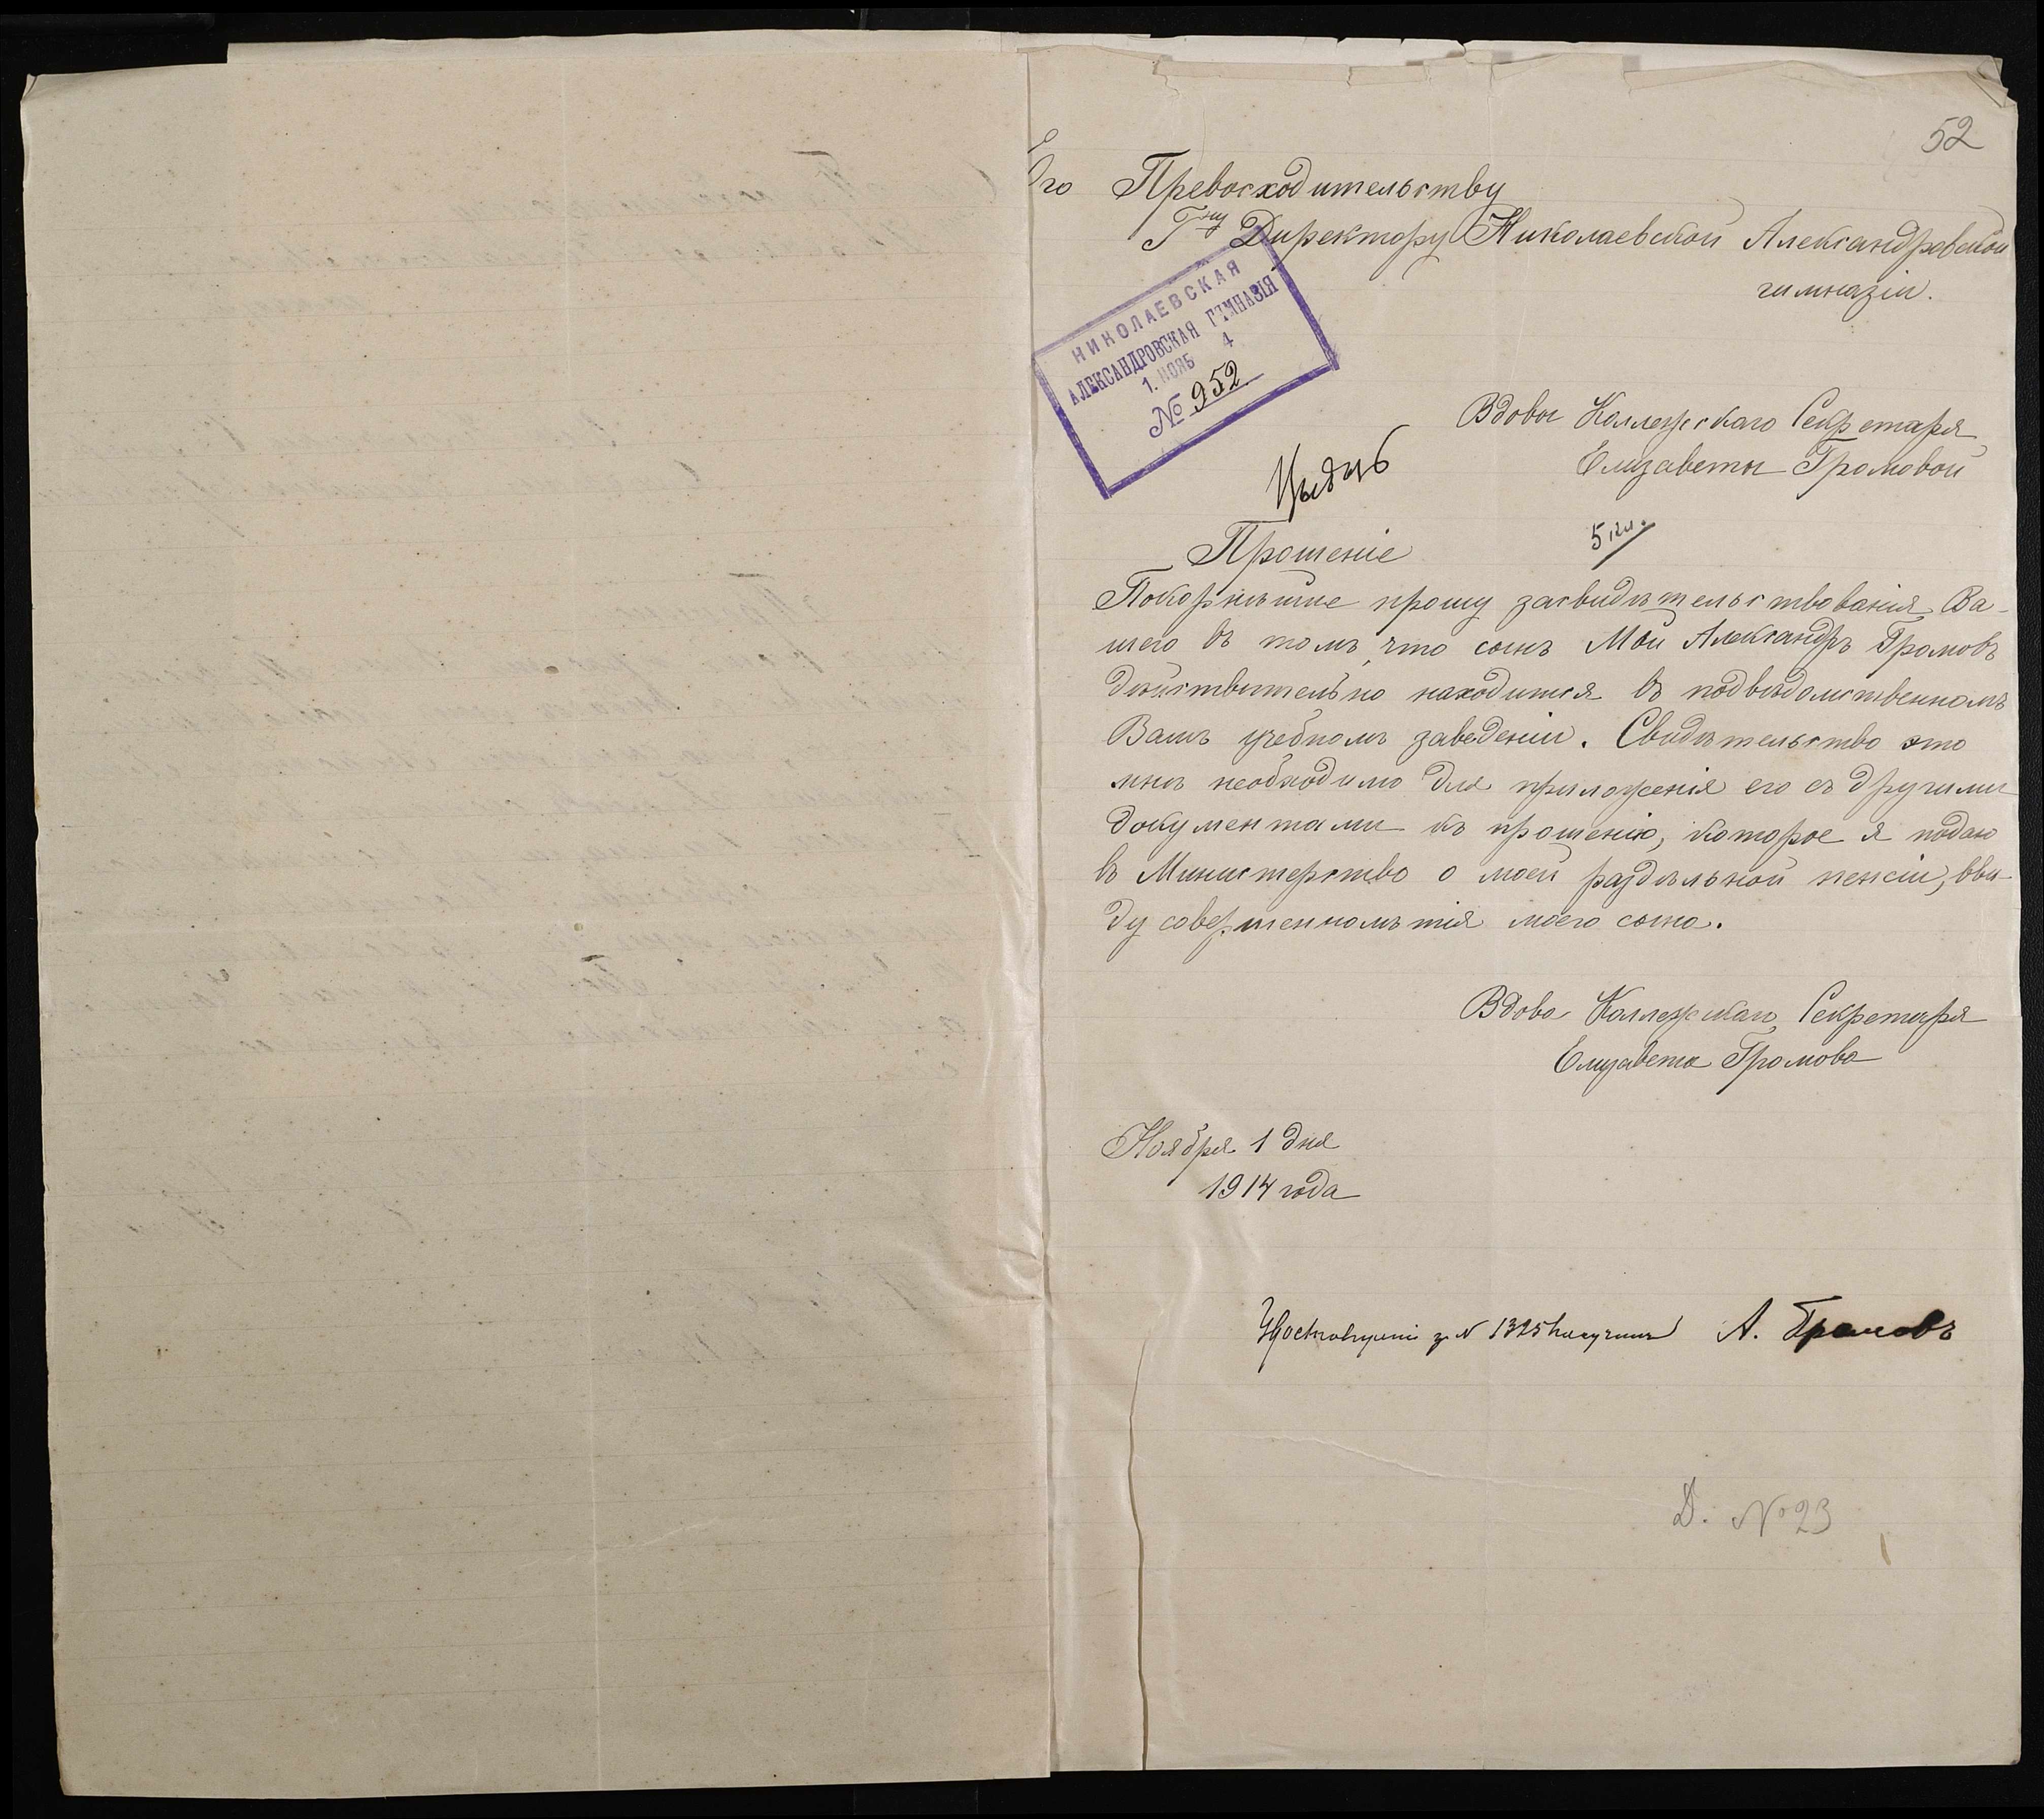 52
Его Превосходительству
Гну Директору Николаевской Александровской
гимназіи.
НИКОЛАЕВСКАЯ
АЛЕКСАНДРОВСКАЯ ГИМНАЗІЯ
1. НОЯБ 4
№ 952
Вдовы Коллежскаго Секретаря
Елизаветы Громовой
Выдать
Прошеніе
Покорнѣйше прошу засвидѣтельствованія Ва-
шего въ томъ, что сынъ Мой Александръ Громовъ
дѣйствительно находится въ подвѣдомственномъ
Вамъ учебномъ заведеніи. Свидѣтельство это
мнѣ необходимо для приложенія его съ другими
документами къ прошенію, которое я подаю
въ Министерство о моей раздѣльной пенсіи, вви-
ду совершеннолѣтія моего сына.
Вдова Коллежскаго Секретаря
Елизавета Громова
Ноября 1 дня
1914 года
Удостовѣреніе за № 1325 получилъ А. Громовъ
Д. № 23